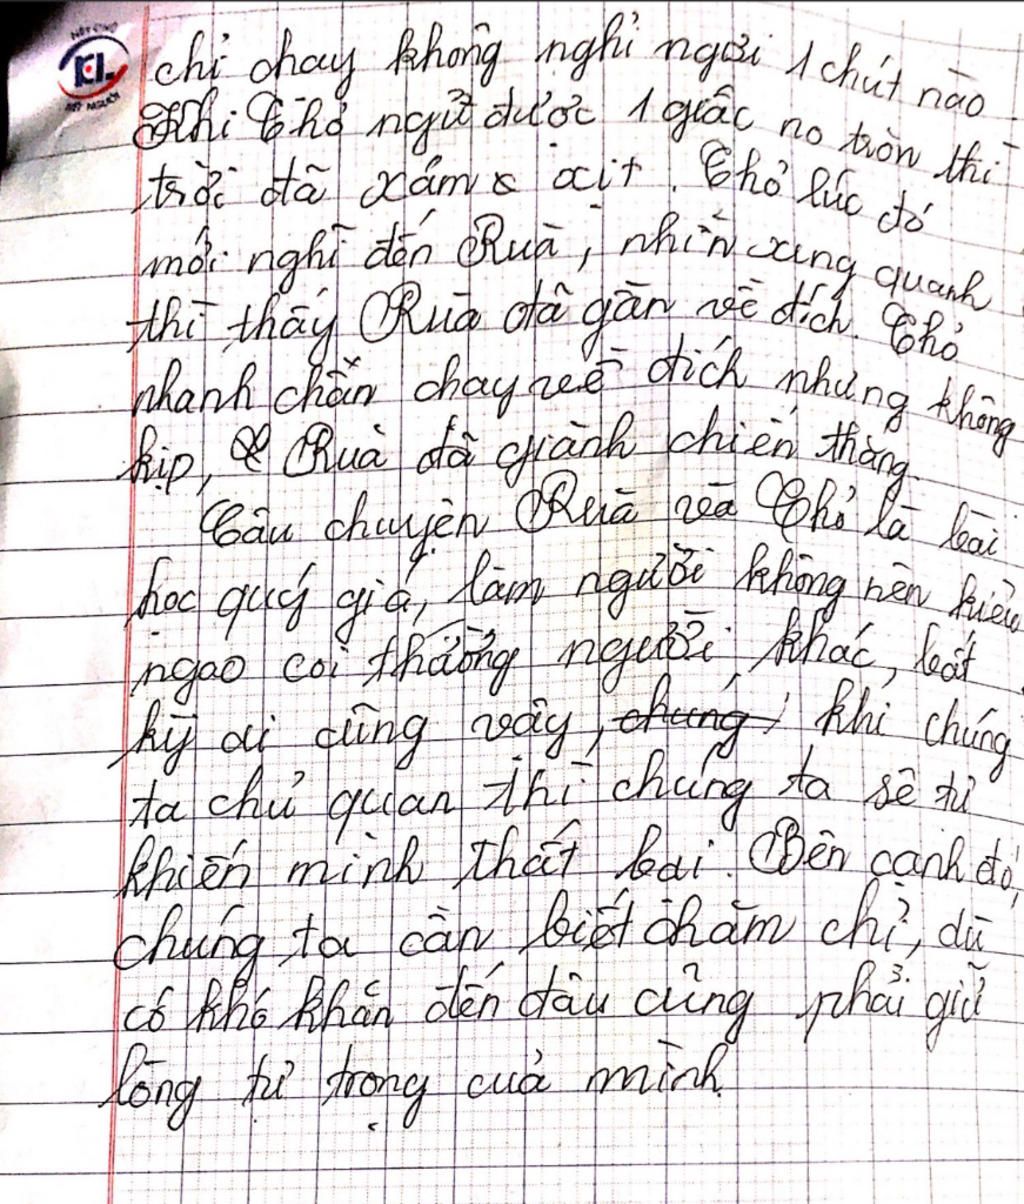 NÉT CHỮ
KL
NẾT NGƯỜI
chỉ chạy không nghỉ ngơi 1 chút nào
Khi Thỏ ngủ được 1 giấc no tròn thì
trời đã xám xịt. Thỏ lúc đó
mới nghĩ đến Rùa, nhìn xung quanh
thì thấy Rùa đã gần về đích. Thỏ
nhanh chân chạy về đích nhưng không
kịp, Rùa đã giành chiến thắng.
Câu chuyện Rùa và Thỏ là bài
học quý giá, làm người không nên kiêu
ngạo coi thường người khác, bất
kỳ ai cũng vậy, chúng, khi chúng
ta chủ quan thì chúng ta sẽ tự
khiến mình thất bại. Bên cạnh đó,
chúng ta cần biết chăm chỉ, dù
có khó khăn đến đâu cũng phải giữ
lòng tự trọng của mình.